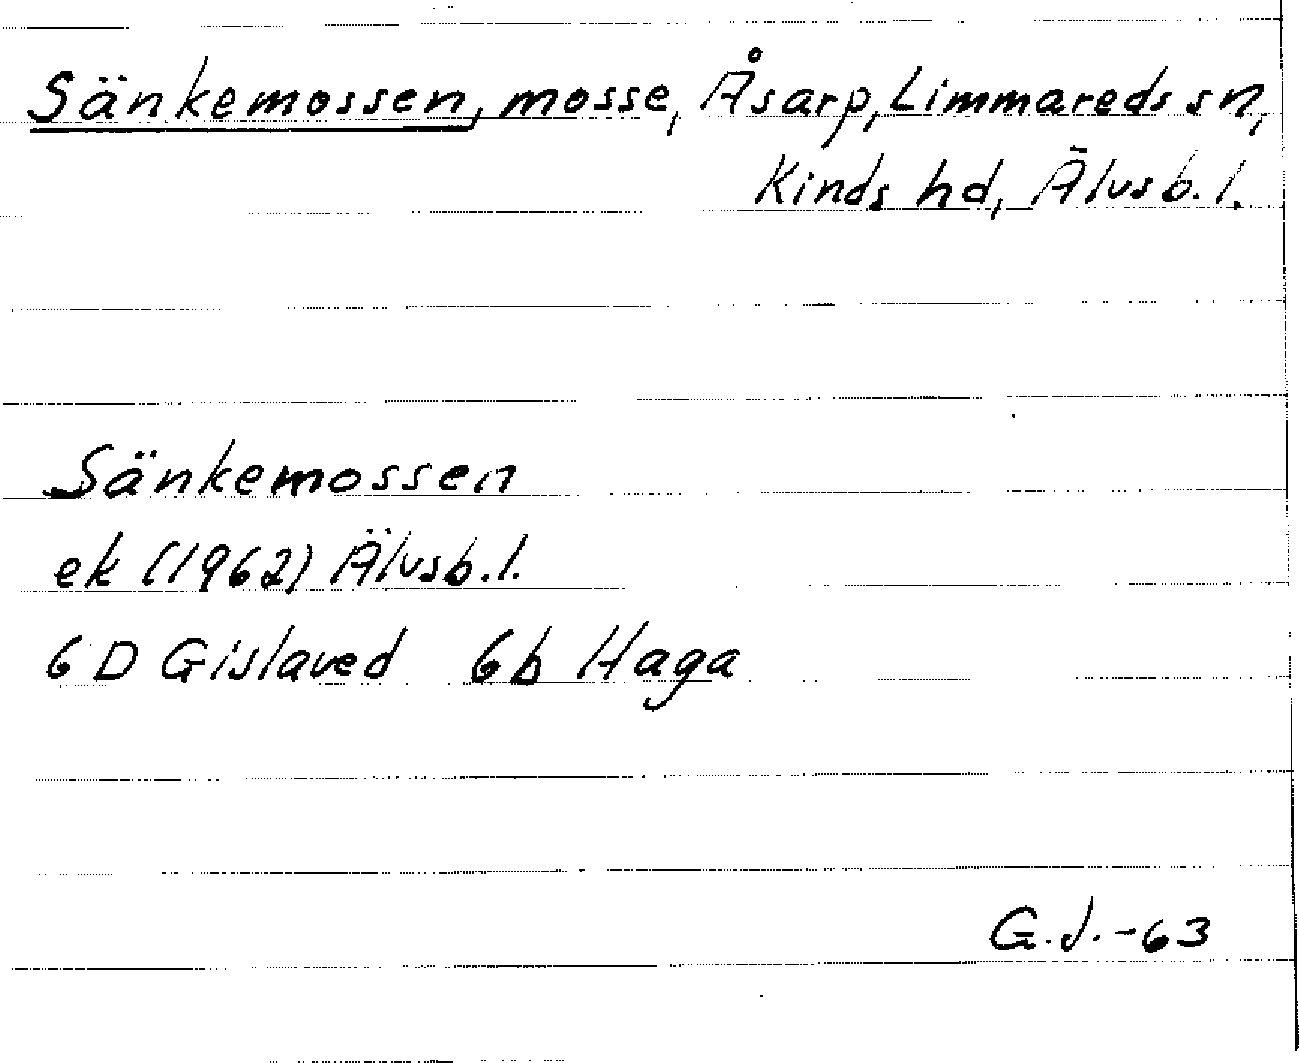 Sänkemossen, mosse, Åsarp, Limmareds sn,
Kinds hd, Älvsb. l.
Sänkemossen
ek (1962) Älvsb. l.
6 D Gislaved 6b Haga
G.J. -63